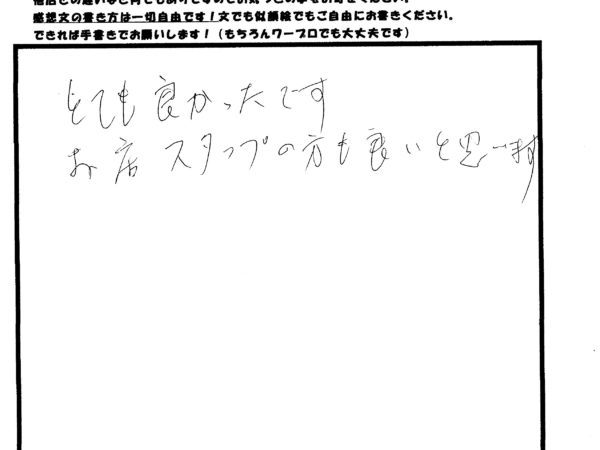 感想文の書き方は一切自由です！文でも似顔絵でもご自由にお書きください。
できれば手書きでお願いします！（もちろんワープロでも大丈夫です）
とても良かったです
お店スタッフの方も良いと思います